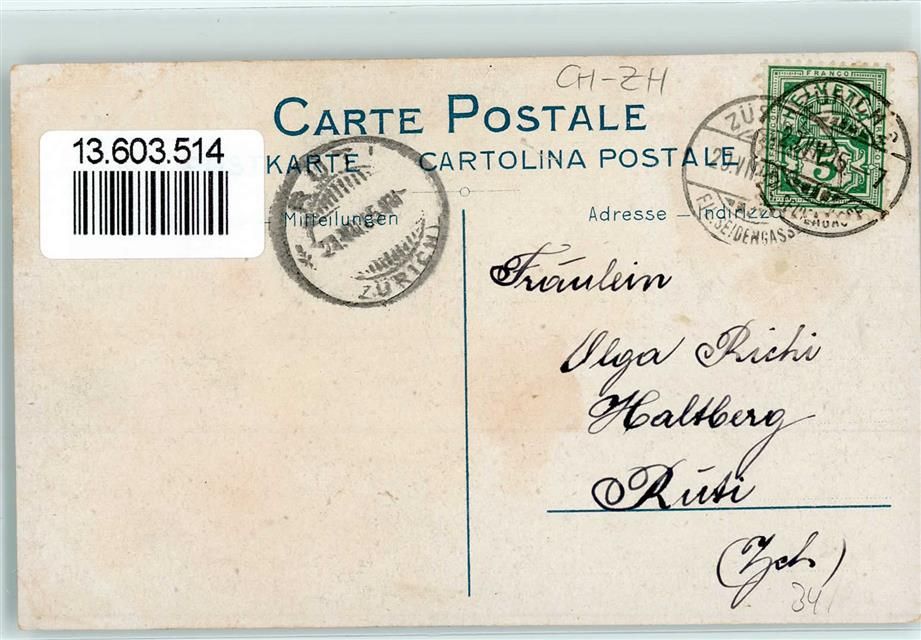 CH-ZH
CARTE POSTALE
13.603.514
KARTE CARTOLINA POSTALE
Mitteilungen
Adresse – Indirizzo
FRANCO
5
ZÜRICH
Fräulein
Olga Richi
Haltberg
Rüti
(Zch)
34